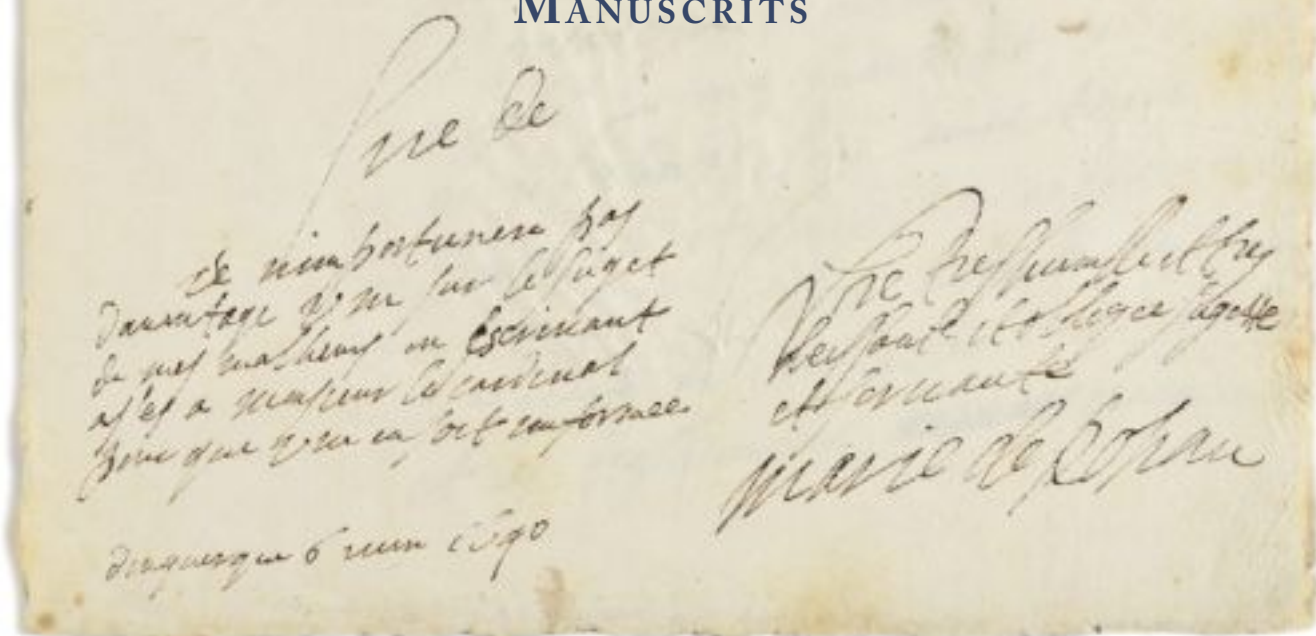 MANUSCRITS
que de
Je nimportunere pas
dauantage vre sur le suget
de mes malheurs en escriuant
ases a monsieur le cardinal
pour que vre en soit informee
dunquerque 6 1640
Vre tres humble et tres
et obligee sugette
et seruante
Marie de Rohan